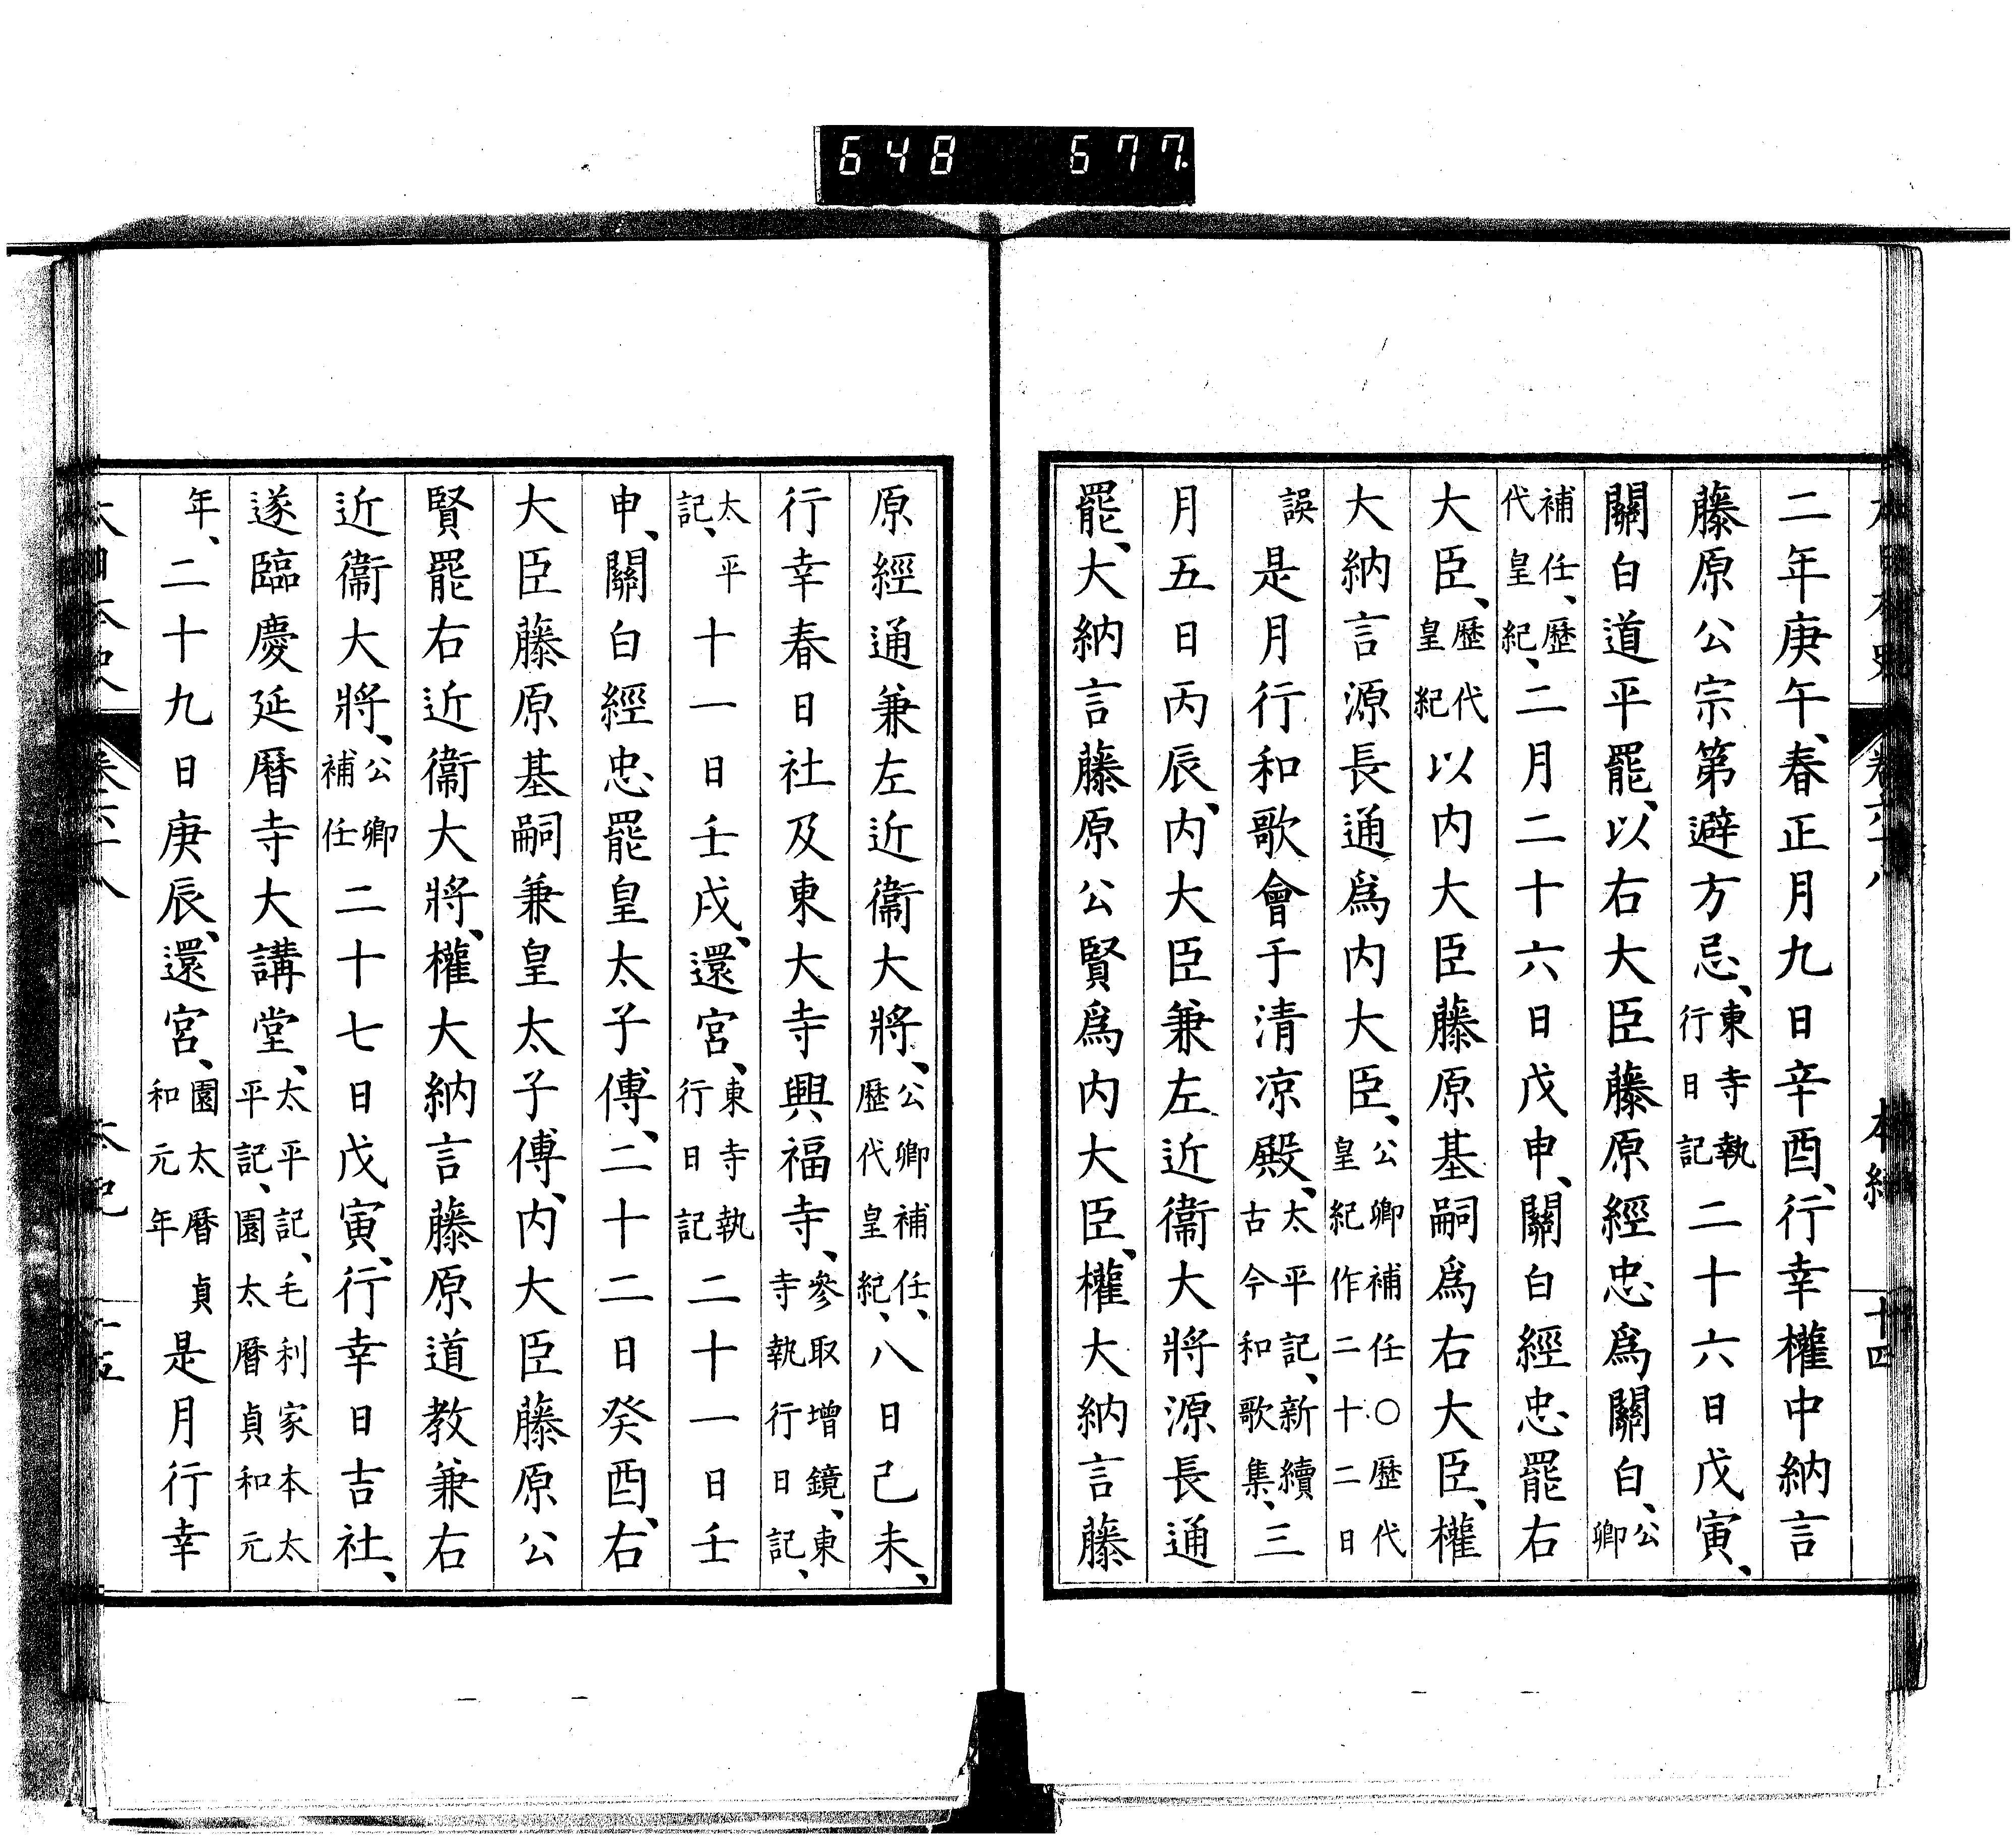 648 677
二年庚午、春正月九日辛酉、行幸權中納言
藤原公宗第避方忌、東寺執行日記二十六日戊寅、
關白道平罷、以右大臣藤原經忠爲關白、公卿
補任、歷代皇紀、二月二十六日戊申、關白經忠罷右
大臣、歷代皇紀以内大臣藤原基嗣爲右大臣、權
大納言源長通爲内大臣、公卿補任〇歷代皇紀作二十二日
誤是月行和歌會于清凉殿、太平記、新續古今和歌集、三
月五日丙辰、内大臣兼左近衞大將源長通
罷、大納言藤原公賢爲内大臣、權大納言藤
原經通兼左近衞大將、公卿補任、歷代皇紀、八日己未、
行幸春日社及東大寺興福寺、參取增鏡、東寺執行日記、
太平記、十一日壬戌、還宮、東寺執行日記二十一日壬
申、關白經忠罷皇太子傅、二十二日癸酉、右
大臣藤原基嗣兼皇太子傅、内大臣藤原公
賢罷右近衞大將、權大納言藤原道教兼右
近衞大將、公卿補任二十七日戊寅、行幸日吉社、
遂臨慶延曆寺大講堂、太平記、毛利家本太平記、園太曆貞和元
年、二十九日庚辰、還宮、園太曆貞和元年是月行幸